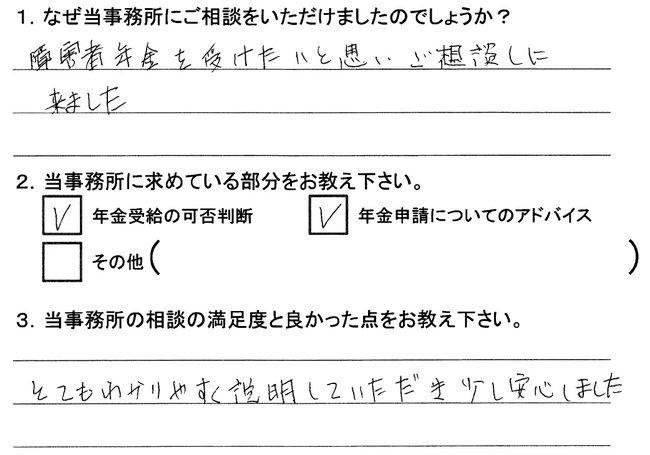 1. なぜ当事務所にご相談をいただけましたのでしょうか？
障害者年金を受けたいと思いご相談しに
来ました
2. 当事務所に求めている部分をお教え下さい。
☑ 年金受給の可否判断 ☑ 年金申請についてのアドバイス
☐ その他( )
3. 当事務所の相談の満足度と良かった点をお教え下さい。
とてもわかりやすく説明していただき少し安心しました